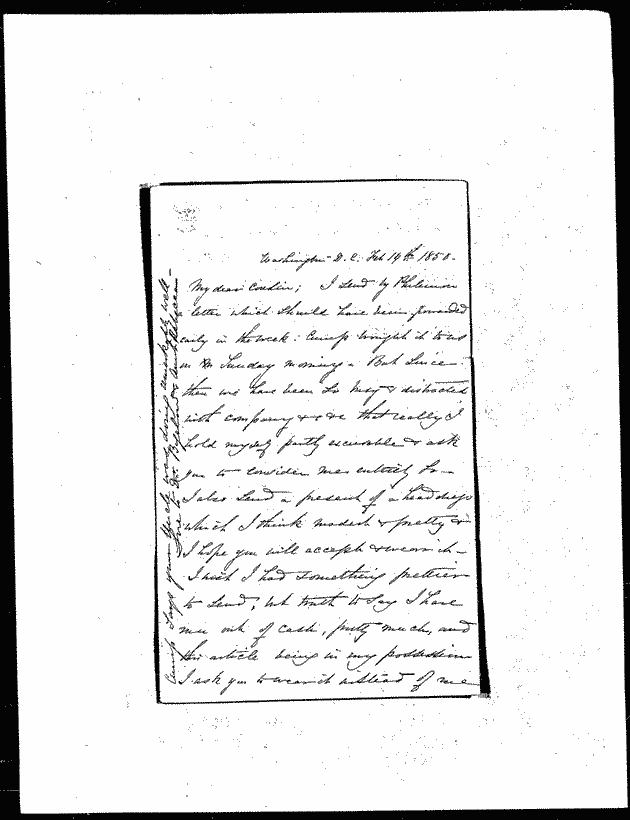 Washington D.C. Feb 14th 1850.
My dear Cousin; I send by Philemon
letter which should have been forwarded
early in the week: Cump brought it to us
on Sunday morning. But since
then we have been so busy & distracted
with company &c &c that really I
hold myself partly excusable & ask
you to consider me entirely so—
I also send a present of a headdress
which I think modest & pretty &
I hope you will accept & wear it—
I wish I had something prettier
to send, but truth to say I have
run out of cash, pretty much, and
this article being in my possession
I ask you to wear it instead of me
Cump says your Uncle was doing quite well—
love to Dr.